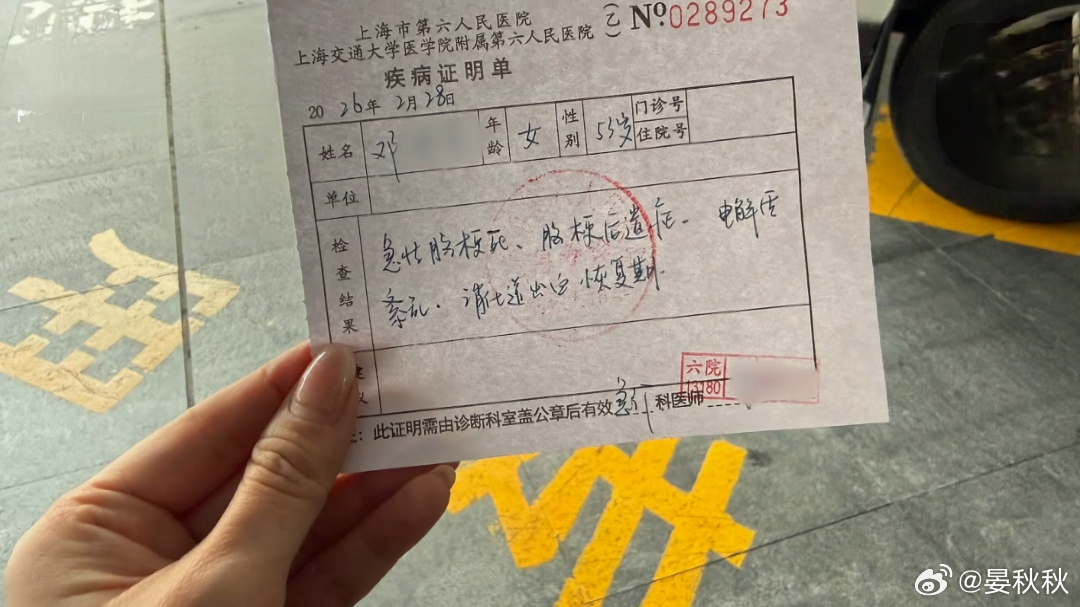 上海市第六人民医院
上海交通大学医学院附属第六人民医院 No.0289273
疾病证明单
2026年2月28日
姓名 邓 年龄 女 性别 53岁 门诊号
住院号
单位
检查结果 急性脑梗死、脑梗后遗症、电解质
紊乱、消化道出血恢复期
六院
注:此证明需由诊断科室盖公章后有效 急诊科医师
@晏秋秋